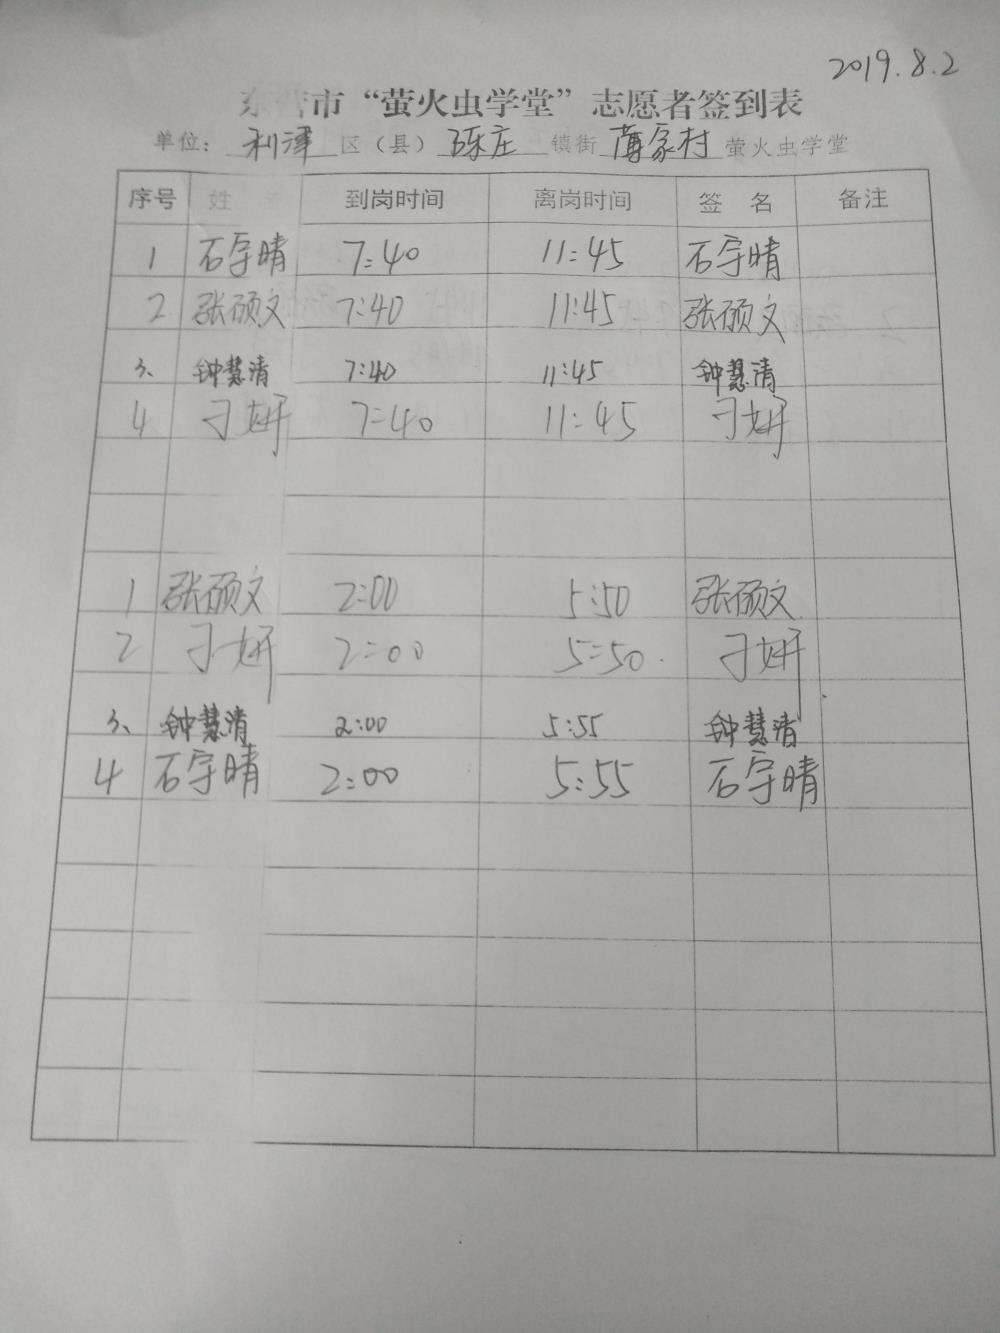 2019.8.2
东营市“萤火虫学堂”志愿者签到表
单位：利津区（县）陈庄镇街薄家村萤火虫学堂
序号 姓 到岗时间 离岗时间 签 名 备注
1 石宇晴 7:40 11:45 石宇晴
2 张硕文 7:40 11:45 张硕文
3、 钟慧清 7:40 11:45 钟慧清
4 刁妍 7:40 11:45 刁妍
1 张硕文 2:00 5:50 张硕文
2 刁妍 2:00 5:50. 刁妍
3、 钟慧清 2:00 5:55 钟慧清
4 石宇晴 2:00 5:55 石宇晴